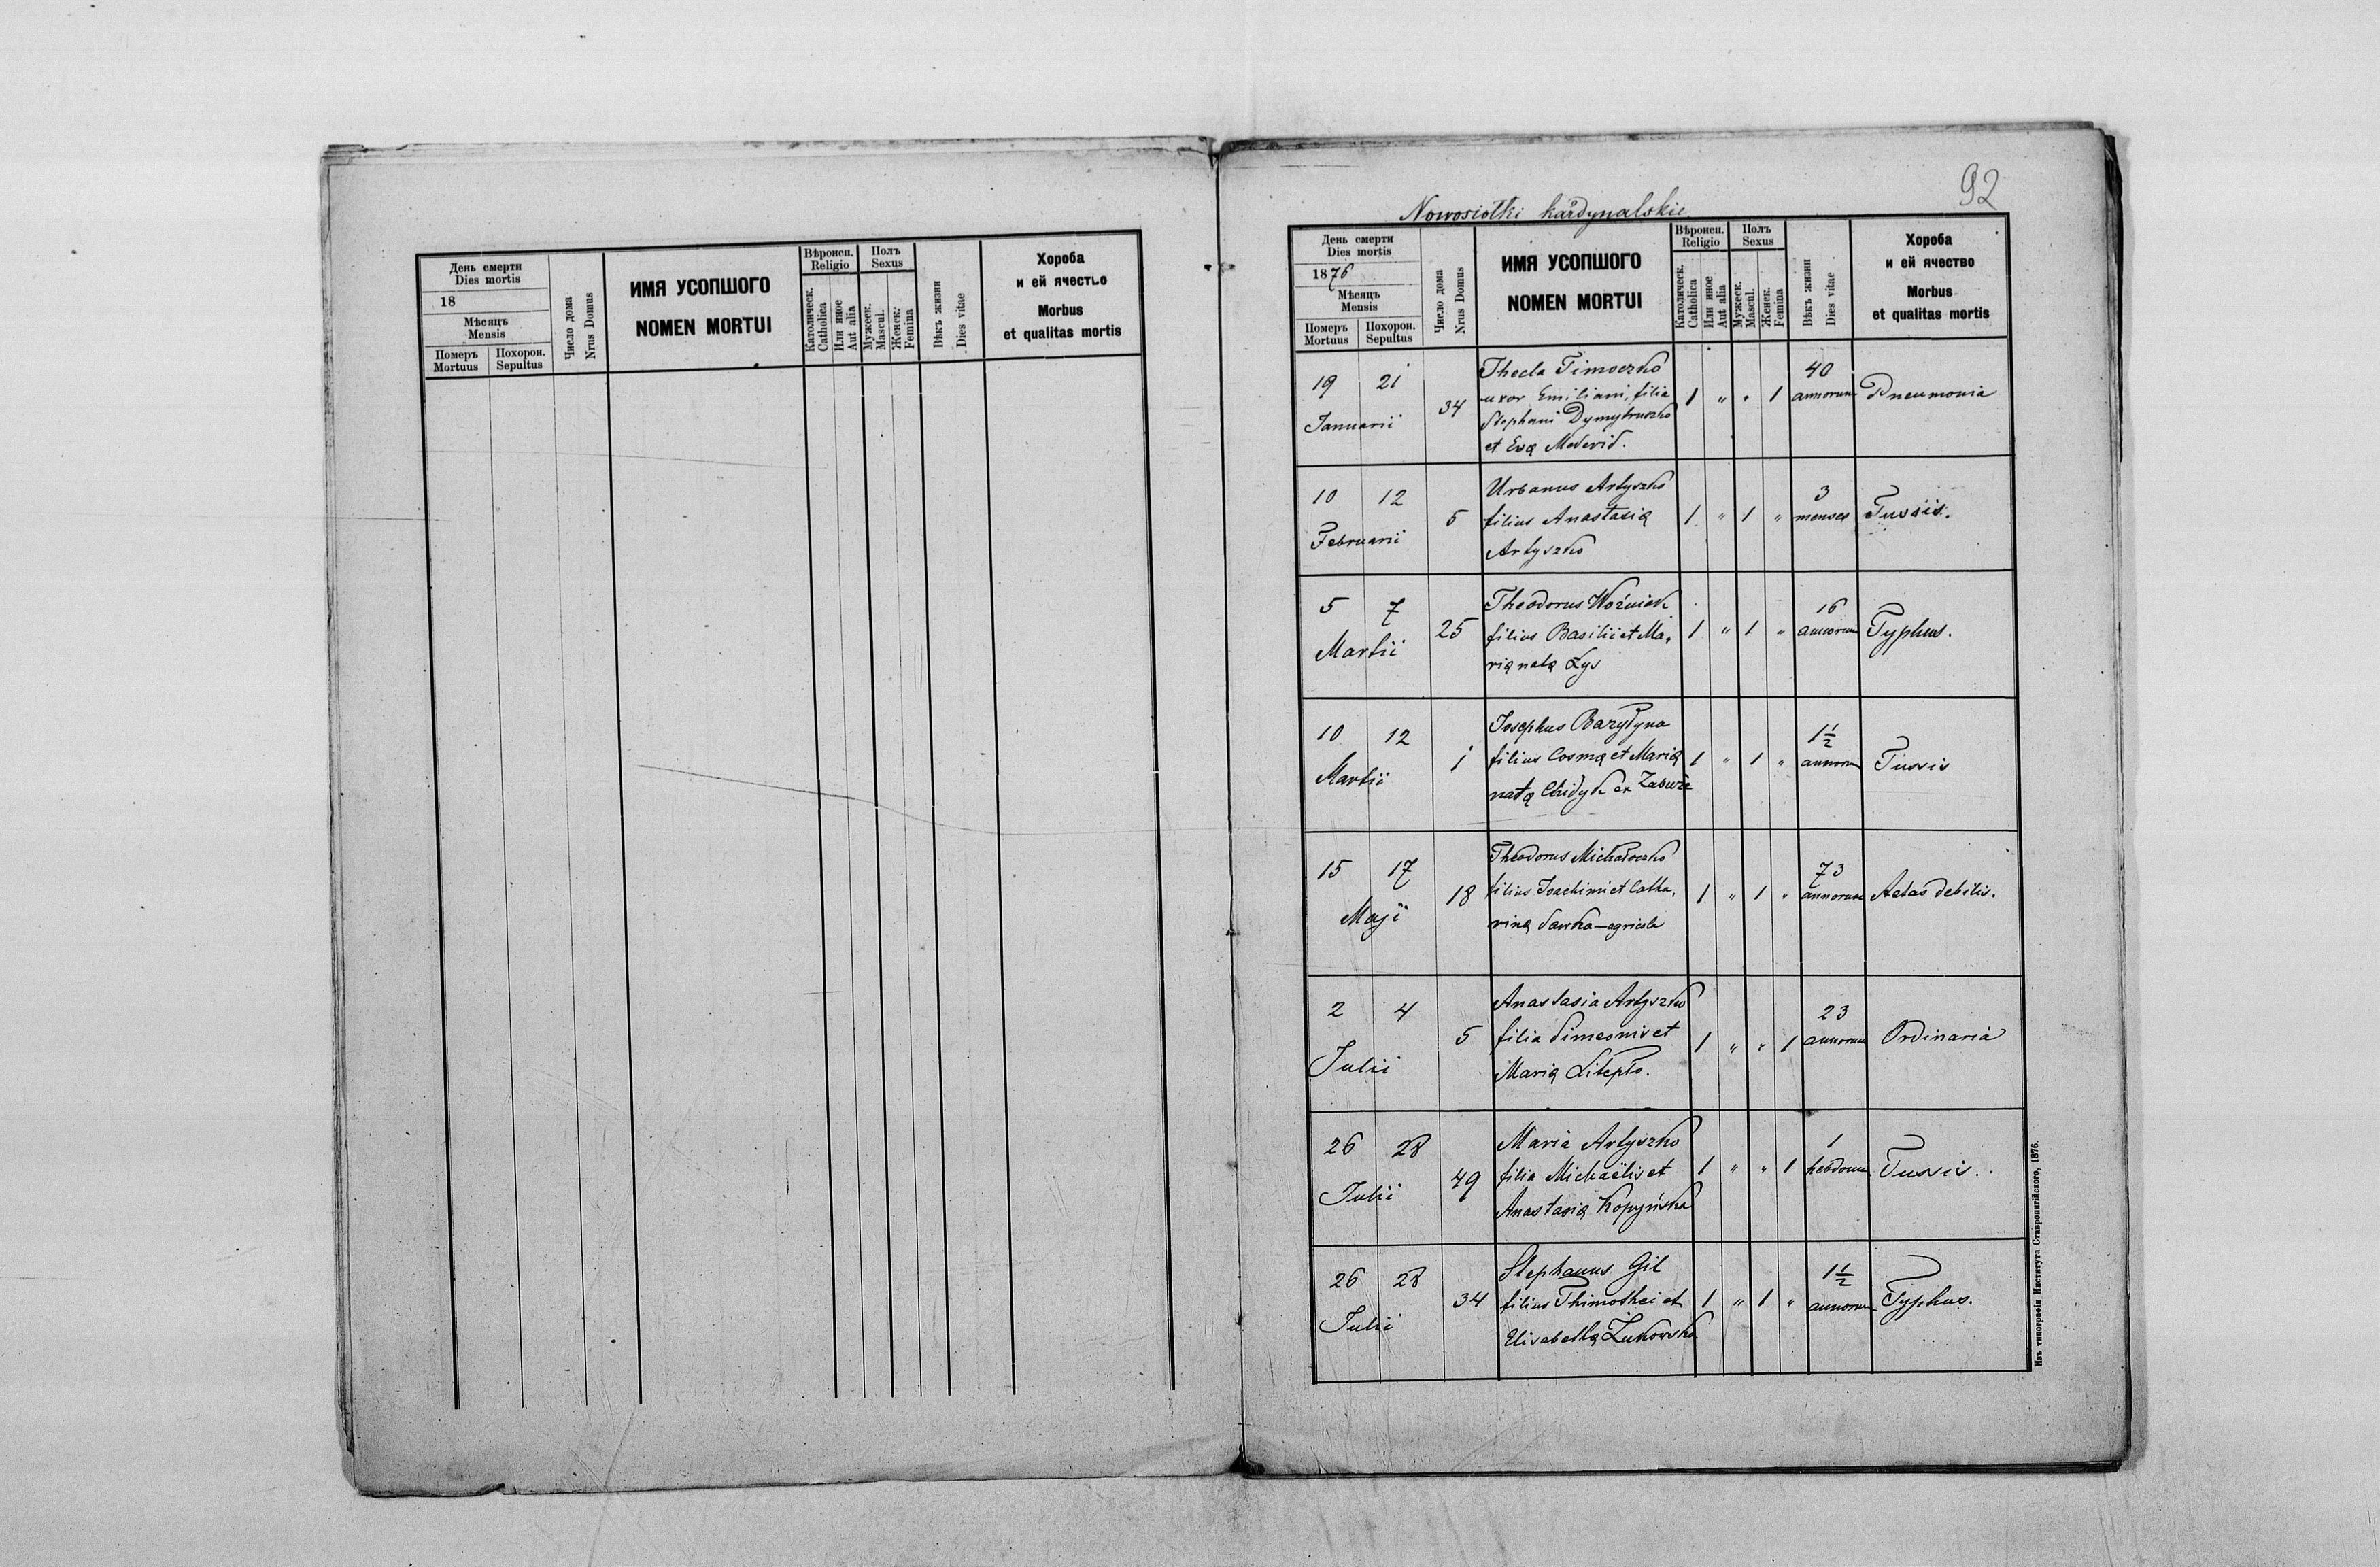 День смерти
Dies mortis
18
Мѣсяцъ
Mensis
Померъ
Mortuus
Похорон.
Sepultus
Число дома
Nrus Domus
ИМЯ УСОПШОГО
NOMEN MORTUI
Вѣроисп.
Religio
Католическ.
Catholica
Или иное
Aut alia
Полъ
Sexus
Мужеск.
Mascul.
Женск.
Femina
Вѣкъ жизни
Dies vitae
Хороба
и ей ячество
Morbus
et qualitas mortis
92
Nowosiołki kardynalskie
День смерти
Dies mortis
1876
Мѣсяцъ
Mensis
Померъ
Mortuus
Похорон.
Sepultus
Число дома
Nrus Domus
ИМЯ УСОПШОГО
NOMEN MORTUI
Вѣроисп.
Religio
Католическ.
Catholica
Или иное
Aut alia
Полъ
Sexus
Мужеск.
Mascul.
Женск.
Femina
Вѣкъ жизни
Dies vitae
Хороба
и ей ячество
Morbus
et qualitas mortis
19 21
Januarii
34
Thecla Timoczko
uxor Emiliani, filia
Stephani Dymytruszko
et Eva
1 " " 1
40
annorum
Pneumonia
10 12
Februarii
5
Urbanus Artyszko
filius Anastasię
Artyszko
1 " 1 "
3
menses
Tussis.
5 7
Martii
25
Theodorus Woźniak
filius Basilii et Ma-
rię natę Lys
1 " 1 "
16
annorum
Typhus.
10 12
Martii
1
Josephus Bazylyna
filius Cosmę et Marię
natę Chidyk ex Zaburze
1 " 1 "
1 1/2
annorum
Tussis
15 17
Maji
18
Theodorus Michałoczko
filius Joachimi et Catha-
rinę Sawka – agricola
1 " 1 "
73
annorum
Aetas debilis.
2 4
Julii
5
Anastasia Artyszko
filia Simeonis et
Marię
1 " " 1
23
annorum
Ordinaria
26 28
Julii
49
Maria Artyszko
filia Michaëlis et
Anastasię Kopyńska
1 " " 1
1
hebdom.
Tussis.
26 28
Julii
34
Stephanus Gil
filius Thimothei et
Elisabethę Żukowska
1 " 1 "
1 1/2
annorum
Typhus.
Изъ типографіи Института Ставропигійского, 1876.